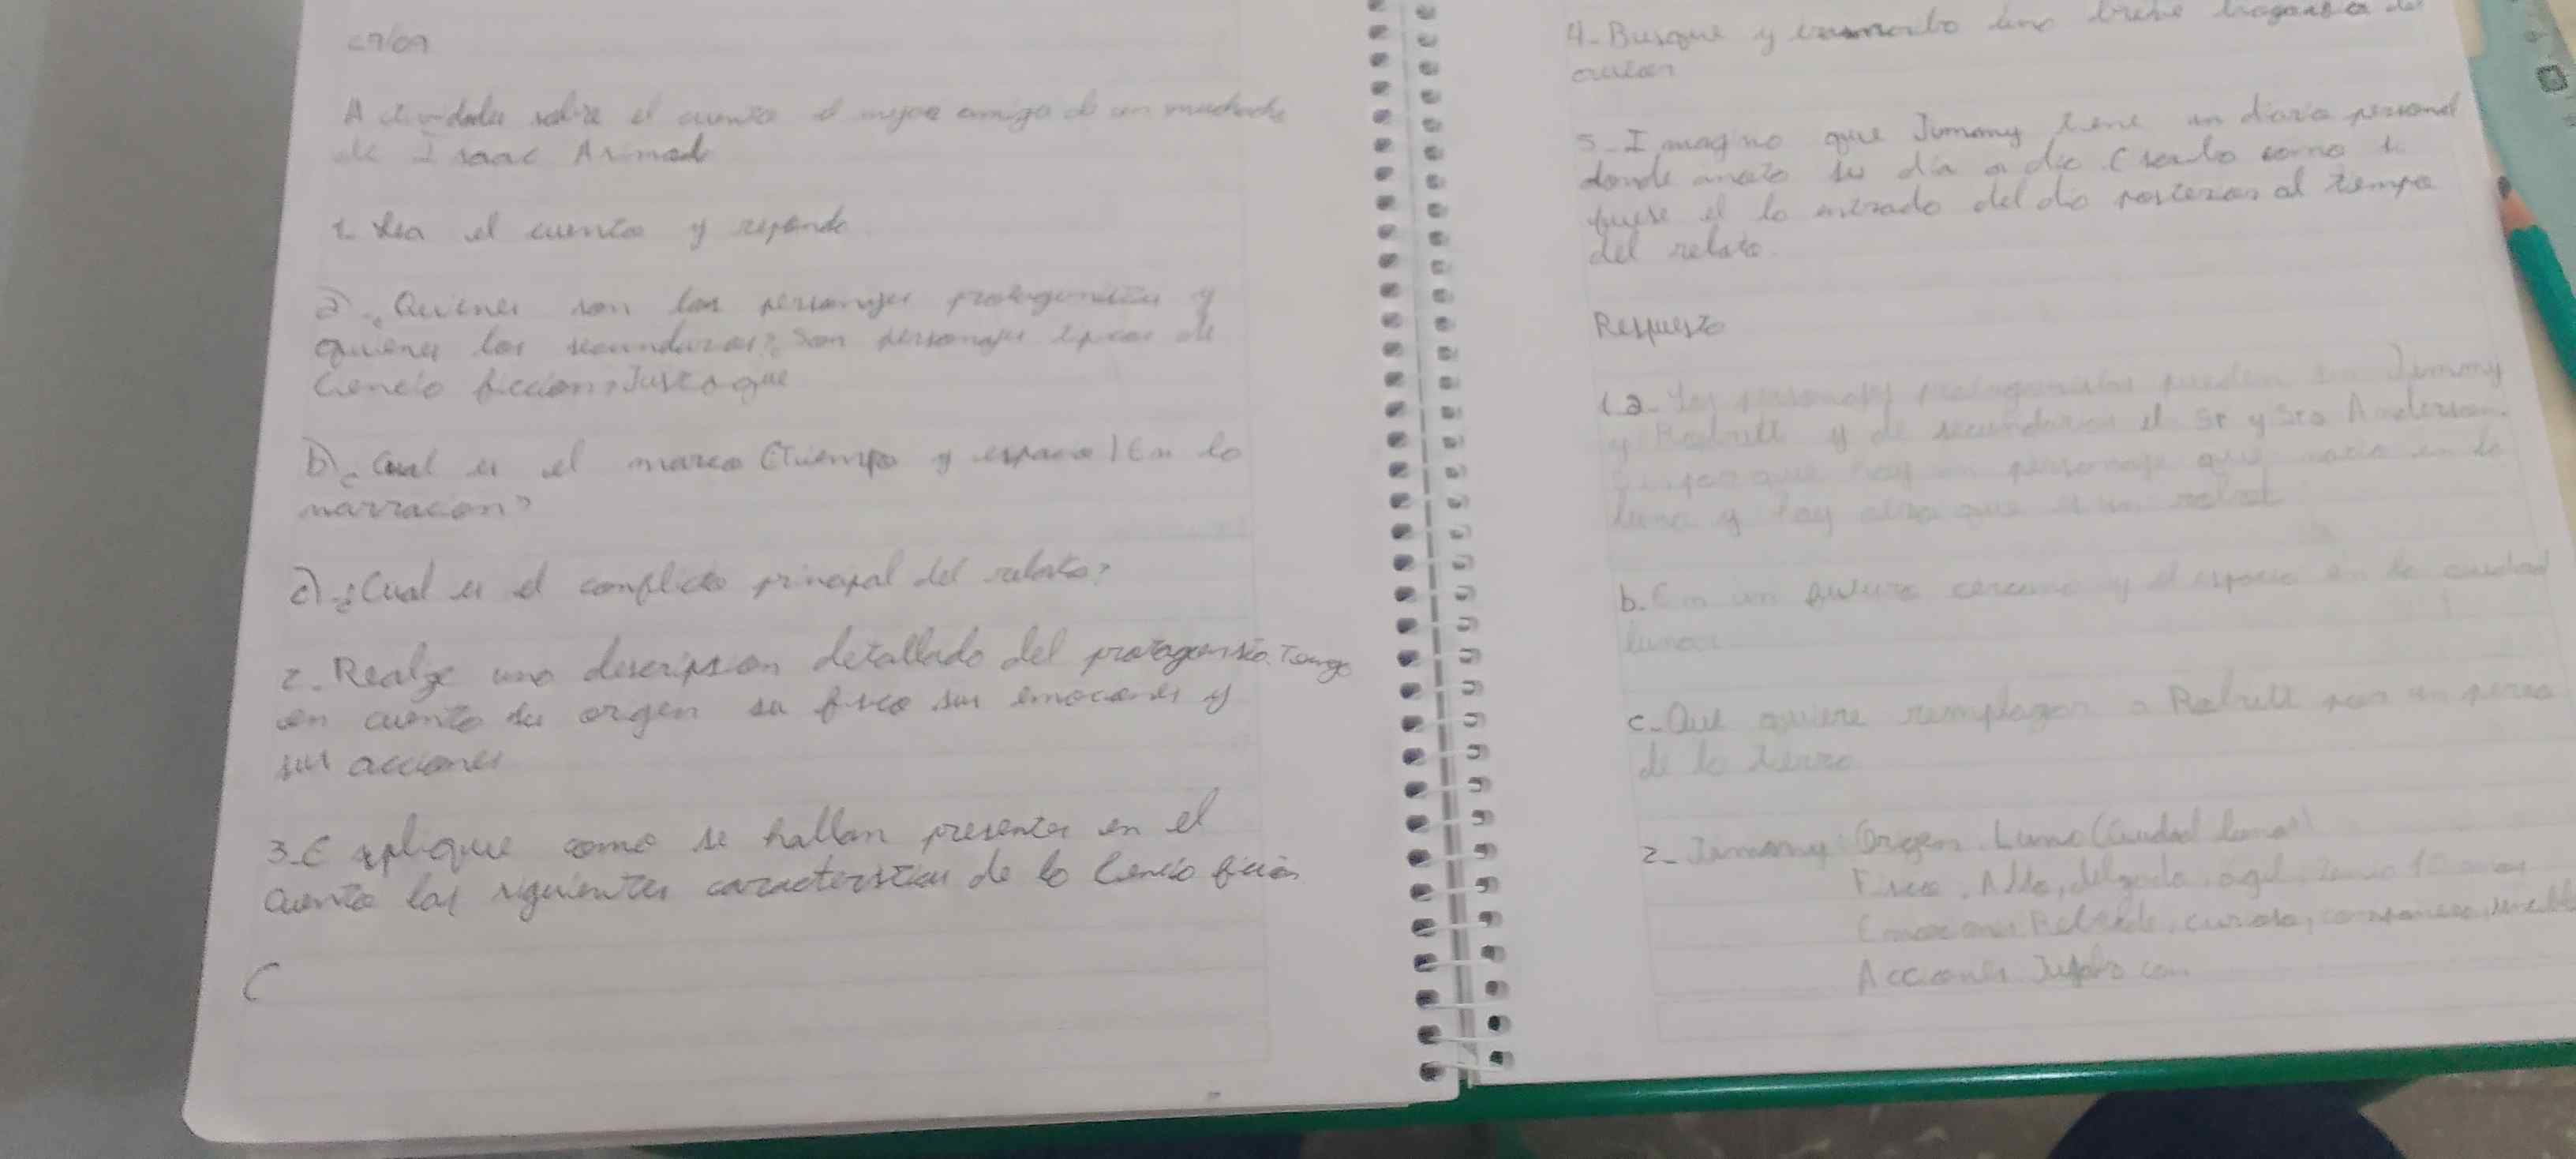 27/09
Actividades sobre el cuento el mejor amigo de un muchacho
de Isaac Asimod
1. Lea el cuento y reponda
a)-¿Quienes son los personajes protagonistas y
quienes los secundarios?¿Son personajes tipicos de
Ciencia ficcion? Justo que
b)¿Cual es el marco (Tiempo y espacio) En la
narracion?
c)-¿Cual es el conflicto principal del relato?
2. Realze una descripsion detallada del protagonista. Tenga
en cuenta su origen su fisco sus emociones y
sus acciones
3-Explique como se hallan presentes en el
cuento las siguientes caracteristicas de la Ciencia ficcion
C
4-Busque y una breve del
autor
5-Imagino que Jimmy tiene un diario personal
donde anota su dia a dia Escribo como si
fuese el la entrada del dia posterior al tiempo
del relato.
Respuesta
1a- Los personajes protagonistas pueden ser Jimmy
y Robutt y de secundarios el Sr y Sra Anderson.
porque hay un personaje que nacio en la
luna y hay otro que es un robot
b. En un futuro cercano y el espacio en la ciudad
lunar
c-Que quiere remplazar a Robutt por un perro
de la tierra
2- Jimmy: Origen. Luna (Ciudad lunar)
Fisico. Alto, delgado, agil, 10 años
Emociones Rebelde, curioso,
Acciones con